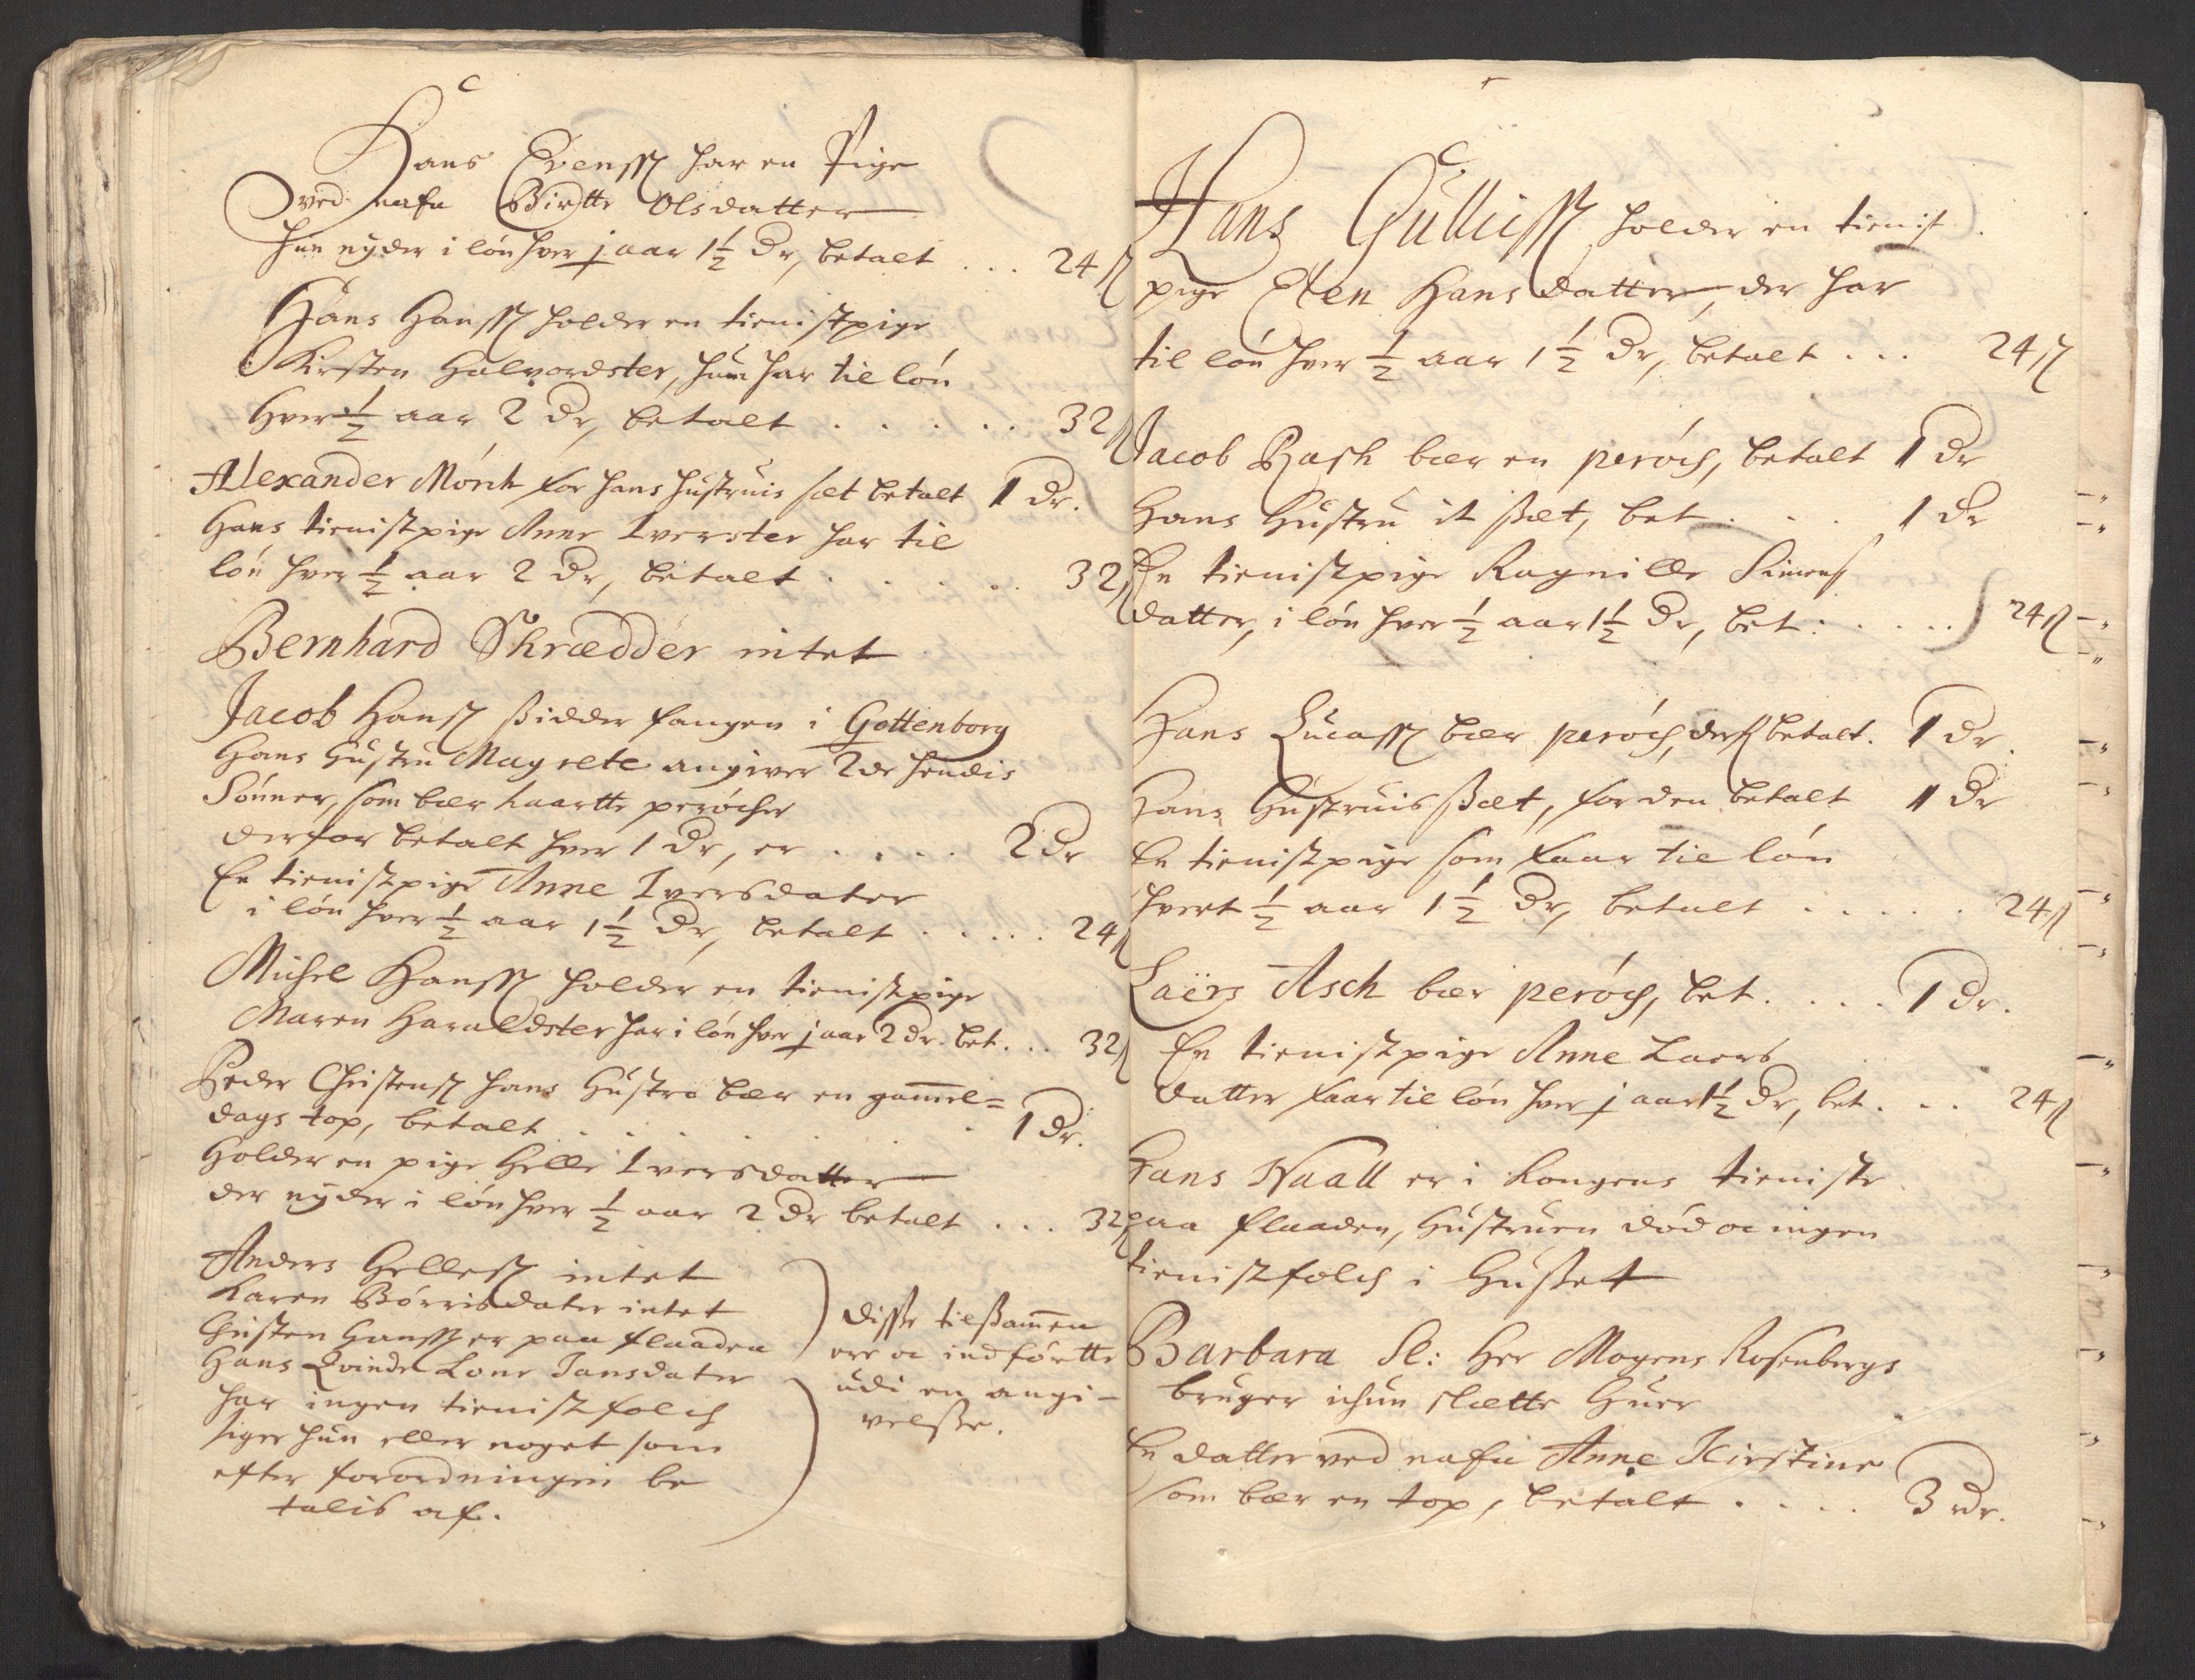 Hans Evenss har en Pige
ved nafn Birtte Olsdatter
hun nyder i løn hver j aar 1½ Dr, betalt ... 24 ß
Hans Hanss holder en tienistpige
Kirsten Halvordster, hun har til løn
hver ½ aar 2 Dr, betalt ..... 32 ß
Alexander Mönch for hans hustruis sæt betalt 1 Dr.
Hans tienistpige Anne Iverster har til
løn hver ½ aar 2 Dr, betalt ..... 32 ß
Bernhard Skrædder intet
Jacob Hanss sidder fangen i Gottenborg
Hans Hustru Magrete angiver 2de hendis
Sønner, som bær kaartte perøcher
derfor betalt hver 1 Dr, er ..... 2 Dr
En tienistpige Anne Iversdater
i løn hver ½ aar 1½ Dr, betalt ..... 24 ß
Michel Hanss holder en tienistpige
Maren Haraldster har i løn hver j aar 2 Dr. bet... 32 ß
Peder Christenss hans Hustro bær en gammel=
dags top, betalt ....... 1 Dr.
Holder en pige Helle Iversdatter
der nyder i løn hver ½ aar 2 Dr betalt ... 32 ß
Anders Helless intet
Karen Børrisdater intet
Christen Hanss er paa flaaden
Hans Qvinde Lone Jansdater
har ingen tienistfolch
siger hun eller noget som
efter forordningen be
talis af.
disse tilsammen
ere oc indførtte
udi en angi-
velsse.
Hans Gulliss holder en tienist
pige Elen Hansdatter, der har
til løn hver ½ aar 1½ Dr, betalt ... 24 ß
Jacob Rash bær en perøch, betalt 1 Dr
Hans Hustru it sæt, bet .... 1 Dr
En tienistpige Ragnille Simens
datter, i løn hver ½ aar 1½ Dr, bet: ..... 24 ß
Hans Lucass bær perøch, derf betalt. 1 Dr.
Hans Hustruis sæt, for den betalt 1 Dr
En tienistpige som faar til løn
hvert ½ aar 1½ Dr, betalt ..... 24 ß
Laers Asch bær perøch, bet. .... 1 Dr.
En tienistpige Anne Laers
datter faar til løn hver j aar 1½ Dr, bet. .. 24 ß
Hans Waall er i Kongens tieniste
paa flaaden, Hustruen død oc ingen
tienistfolch i Husset
Barbara Sl: Her Mogens Rosenbergs
bruger ichun slætte Huer
En datter ved nafn Anne Kirstine
som bær en top, betalt .... 3 Dr.